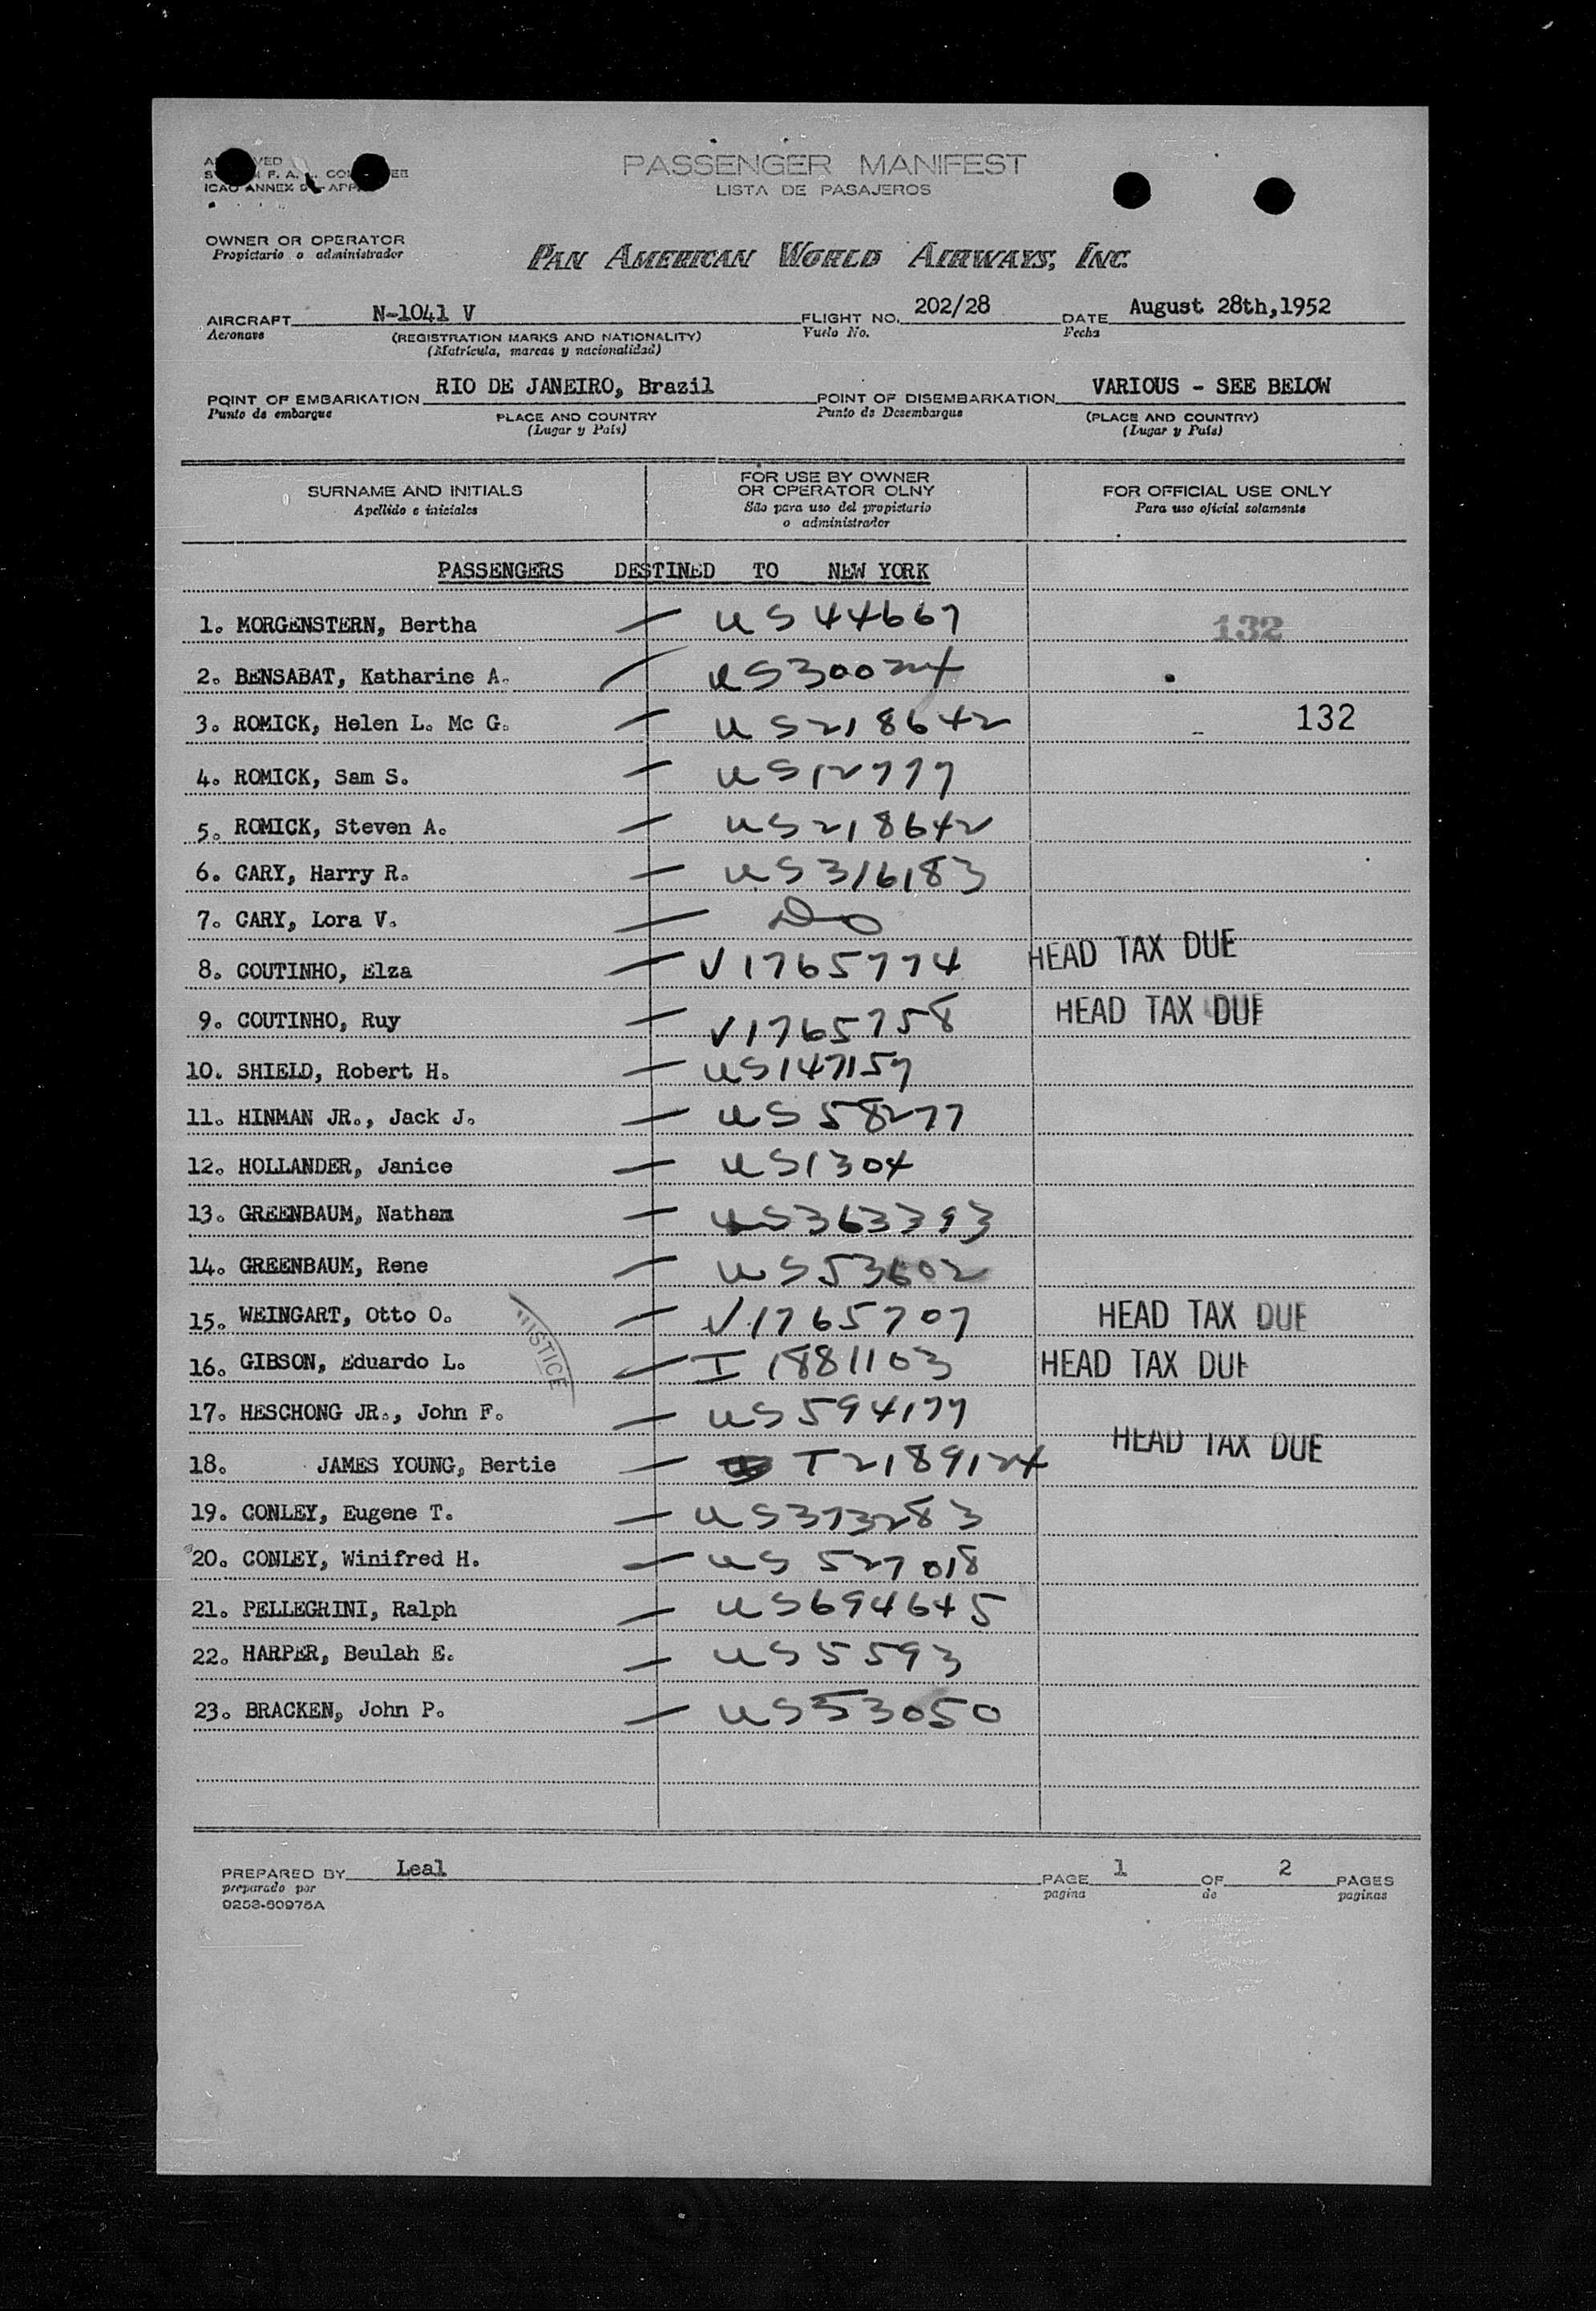 PASSENGER MANIFEST
LISTA DE PASAJEROS
ICAO ANNEX
OWNER OR OPERATOR
Propietario o administrador
PAN AMERICAN WORLD AIRWAYS, INC.
AIRCRAFT N-1041 V FLIGHT NO. 202/28 DATE August 28th, 1952
Aeronave (REGISTRATION MARKS AND NATIONALITY) Vuelo No. Fecha
(Matrícula, marcas y nacionalidad)
POINT OF EMBARKATION RIO DE JANEIRO, Brazil POINT OF DISEMBARKATION VARIOUS - SEE BELOW
Punto de embarque PLACE AND COUNTRY Punto de Desembarque (PLACE AND COUNTRY)
(Lugar y País) (Lugar y País)
SURNAME AND INITIALS
Apellido e iniciales
FOR USE BY OWNER
OR OPERATOR OLNY
São para uso del propietario
o administrador
FOR OFFICIAL USE ONLY
Para uso oficial solamente
PASSENGERS DESTINED TO NEW YORK
1. MORGENSTERN, Bertha — US 44667 132
2. BENSABAT, Katharine A. — US300224
3. ROMICK, Helen L. Mc G. — US218642 132
4. ROMICK, Sam S. — US12777
5. ROMICK, Steven A. — US218642
6. CARY, Harry R. — US316183
7. CARY, Lora V. — Do
8. COUTINHO, Elza — V1765774 HEAD TAX DUE
9. COUTINHO, Ruy — V1765758 HEAD TAX DUE
10. SHIELD, Robert H. — US147157
11. HINMAN JR., Jack J. — US 58277
12. HOLLANDER, Janice — US1304
13. GREENBAUM, Nathan — US363393
14. GREENBAUM, Rene — US53602
15. WEINGART, Otto O. — V1765707 HEAD TAX DUE
16. GIBSON, Eduardo L. — I 1881103 HEAD TAX DUE
17. HESCHONG JR., John F. — US594177
18. JAMES YOUNG, Bertie — T2189124 HEAD TAX DUE
19. CONLEY, Eugene T. — US373283
20. CONLEY, Winifred H. — US 527018
21. PELLEGRINI, Ralph — US694645
22. HARPER, Beulah E. — US5593
23. BRACKEN, John P. — US53050
PREPARED BY Leal PAGE 1 OF 2 PAGES
preparado por pagina de paginas
9253-60975A